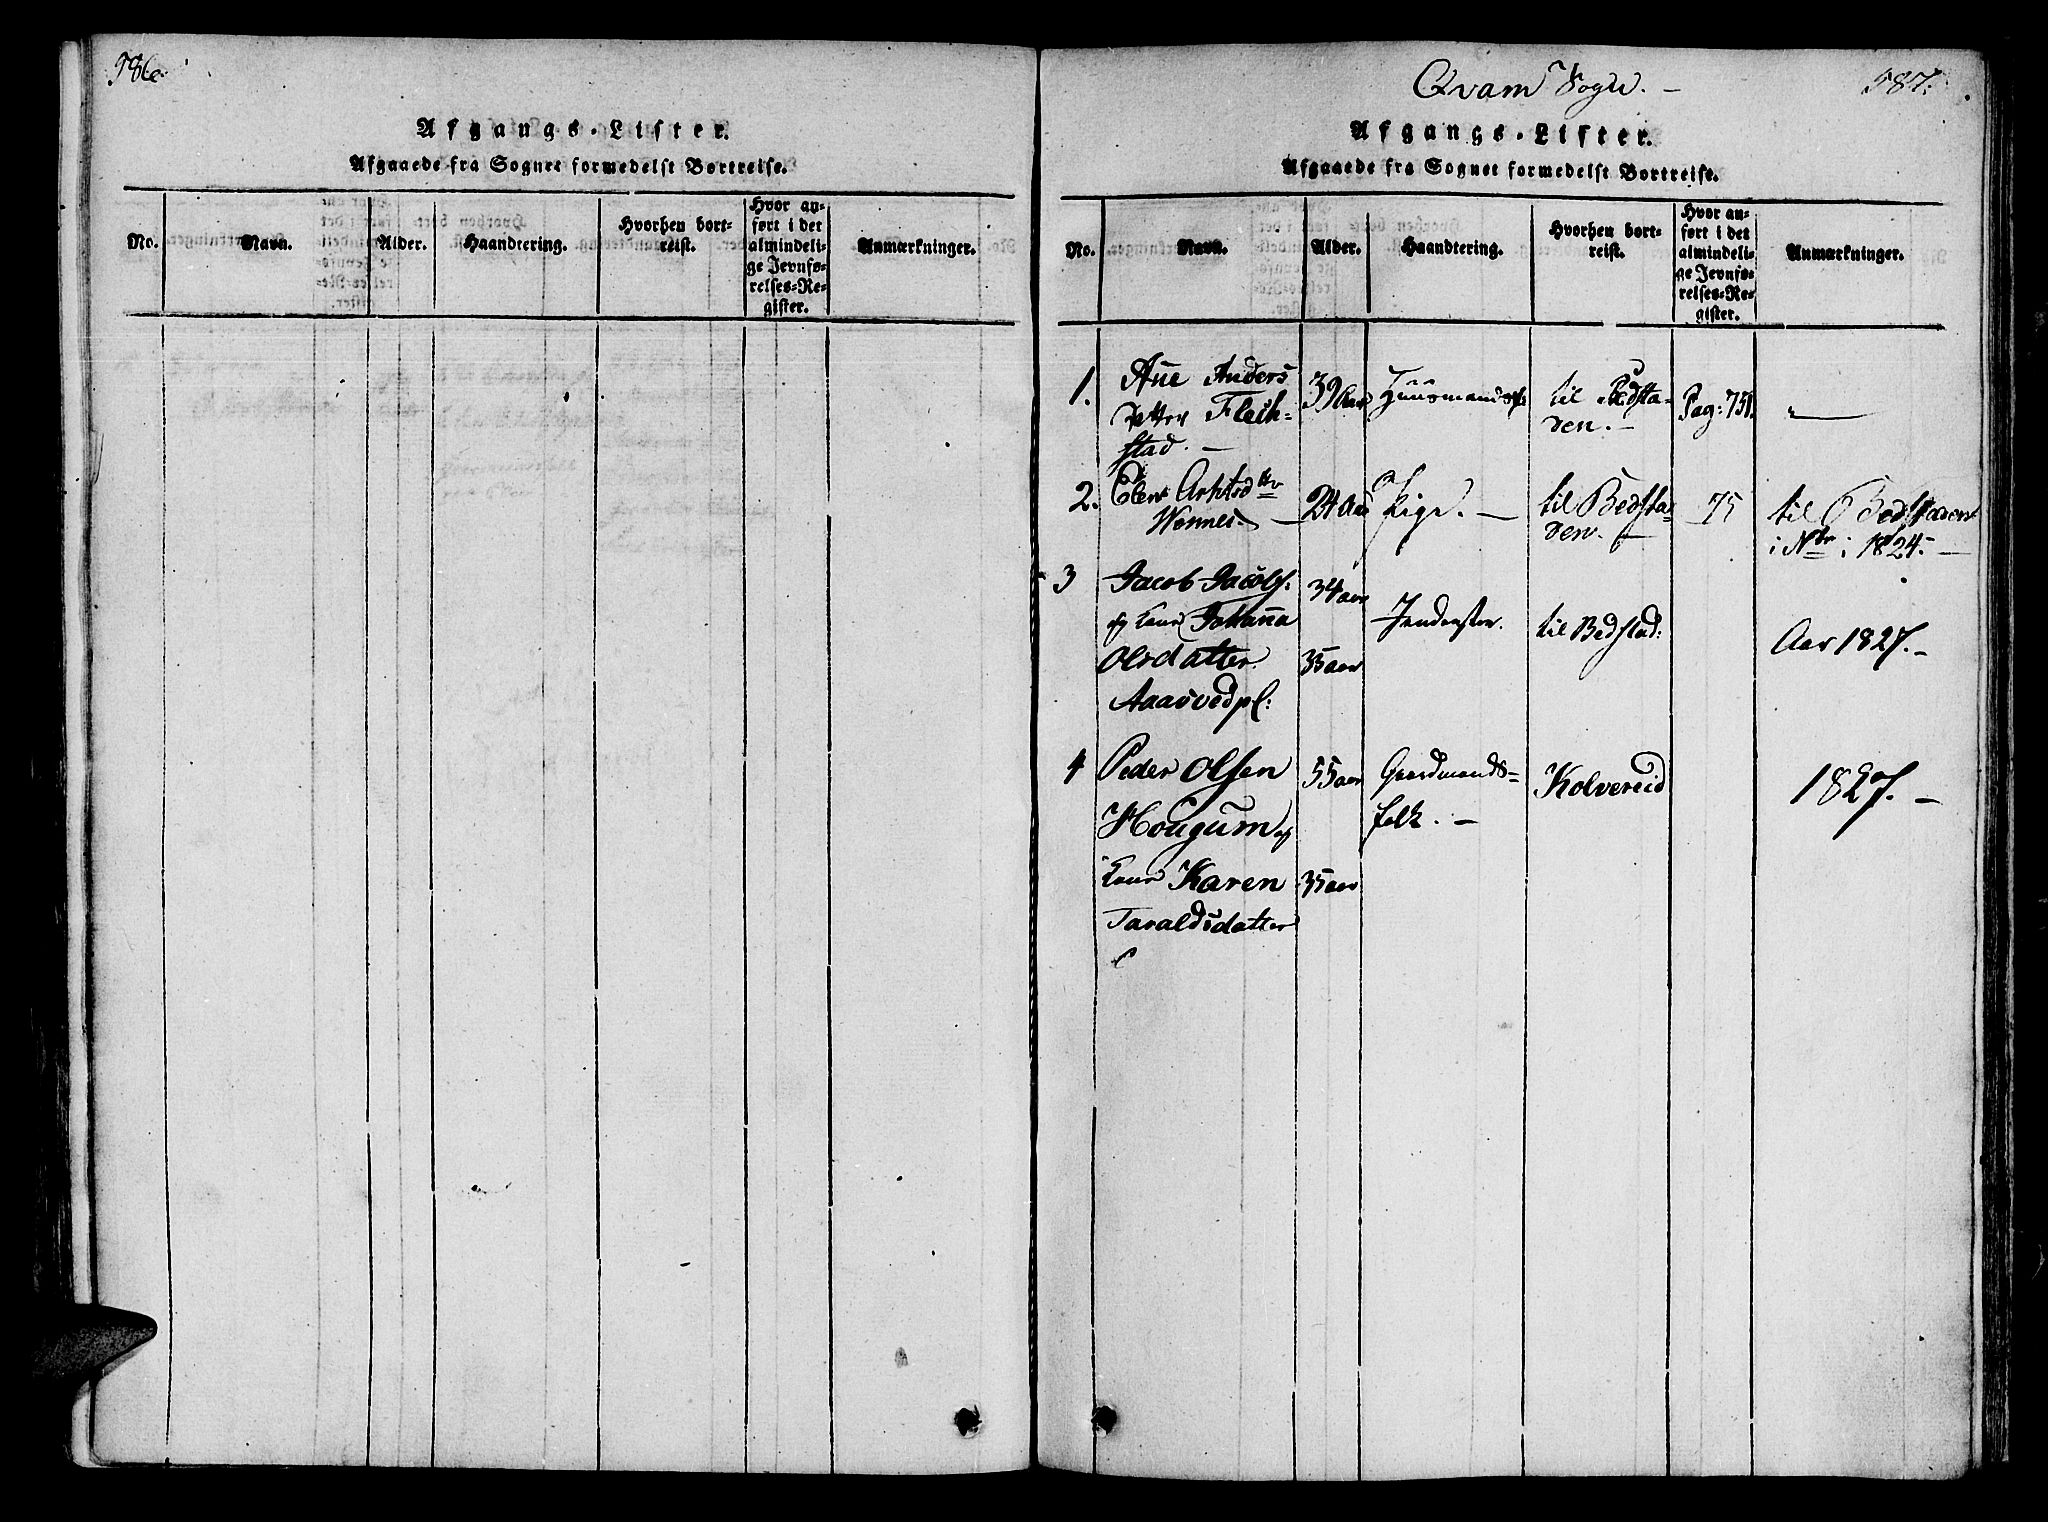 586.
Afgangs-Lister.
Afgaaede fra Sognet formedelst Bortreise.
No.
Navn.
Alder.
Haandtering.
Hvorhen bort-
reist.
Hvor an-
ført i det
almindeli-
ge Jevnfø-
relses-Re-
gister.
Anmærkninger.
Qvam Sogn. -
587.
Afgangs-Lister.
Afgaaede fra Sognet formedelst Bortreise.
No.
Navn.
Alder.
Haandtering.
Hvorhen bort-
reist.
Hvor an-
ført i det
almindeli-
ge Jevnfø-
relses-Re-
gister.
Anmærkninger.
1.
Ane Anders
datter Fleck-
stad. -
39 Aar
til Bedsta-
den. -
Pag: 751.
2.
Elen
Wennes. -
24 Aar
Pige. -
til Bedsta-
den. -
75
til Bedstaden
i Nbr i 1824. -
3
Jacob Jacobs:
og Kone Johanna
Olsdatter
Aaasvedpl:
34 aar
35 aar
Inderster.
til Bedstad:
Aar 1827. -
4
Peder Olsen
Hougum og
Kone Karen
Taraldsdatter
55 aar
35 aar
Gaardmands-
folk. -
Kolvereid
1827. -